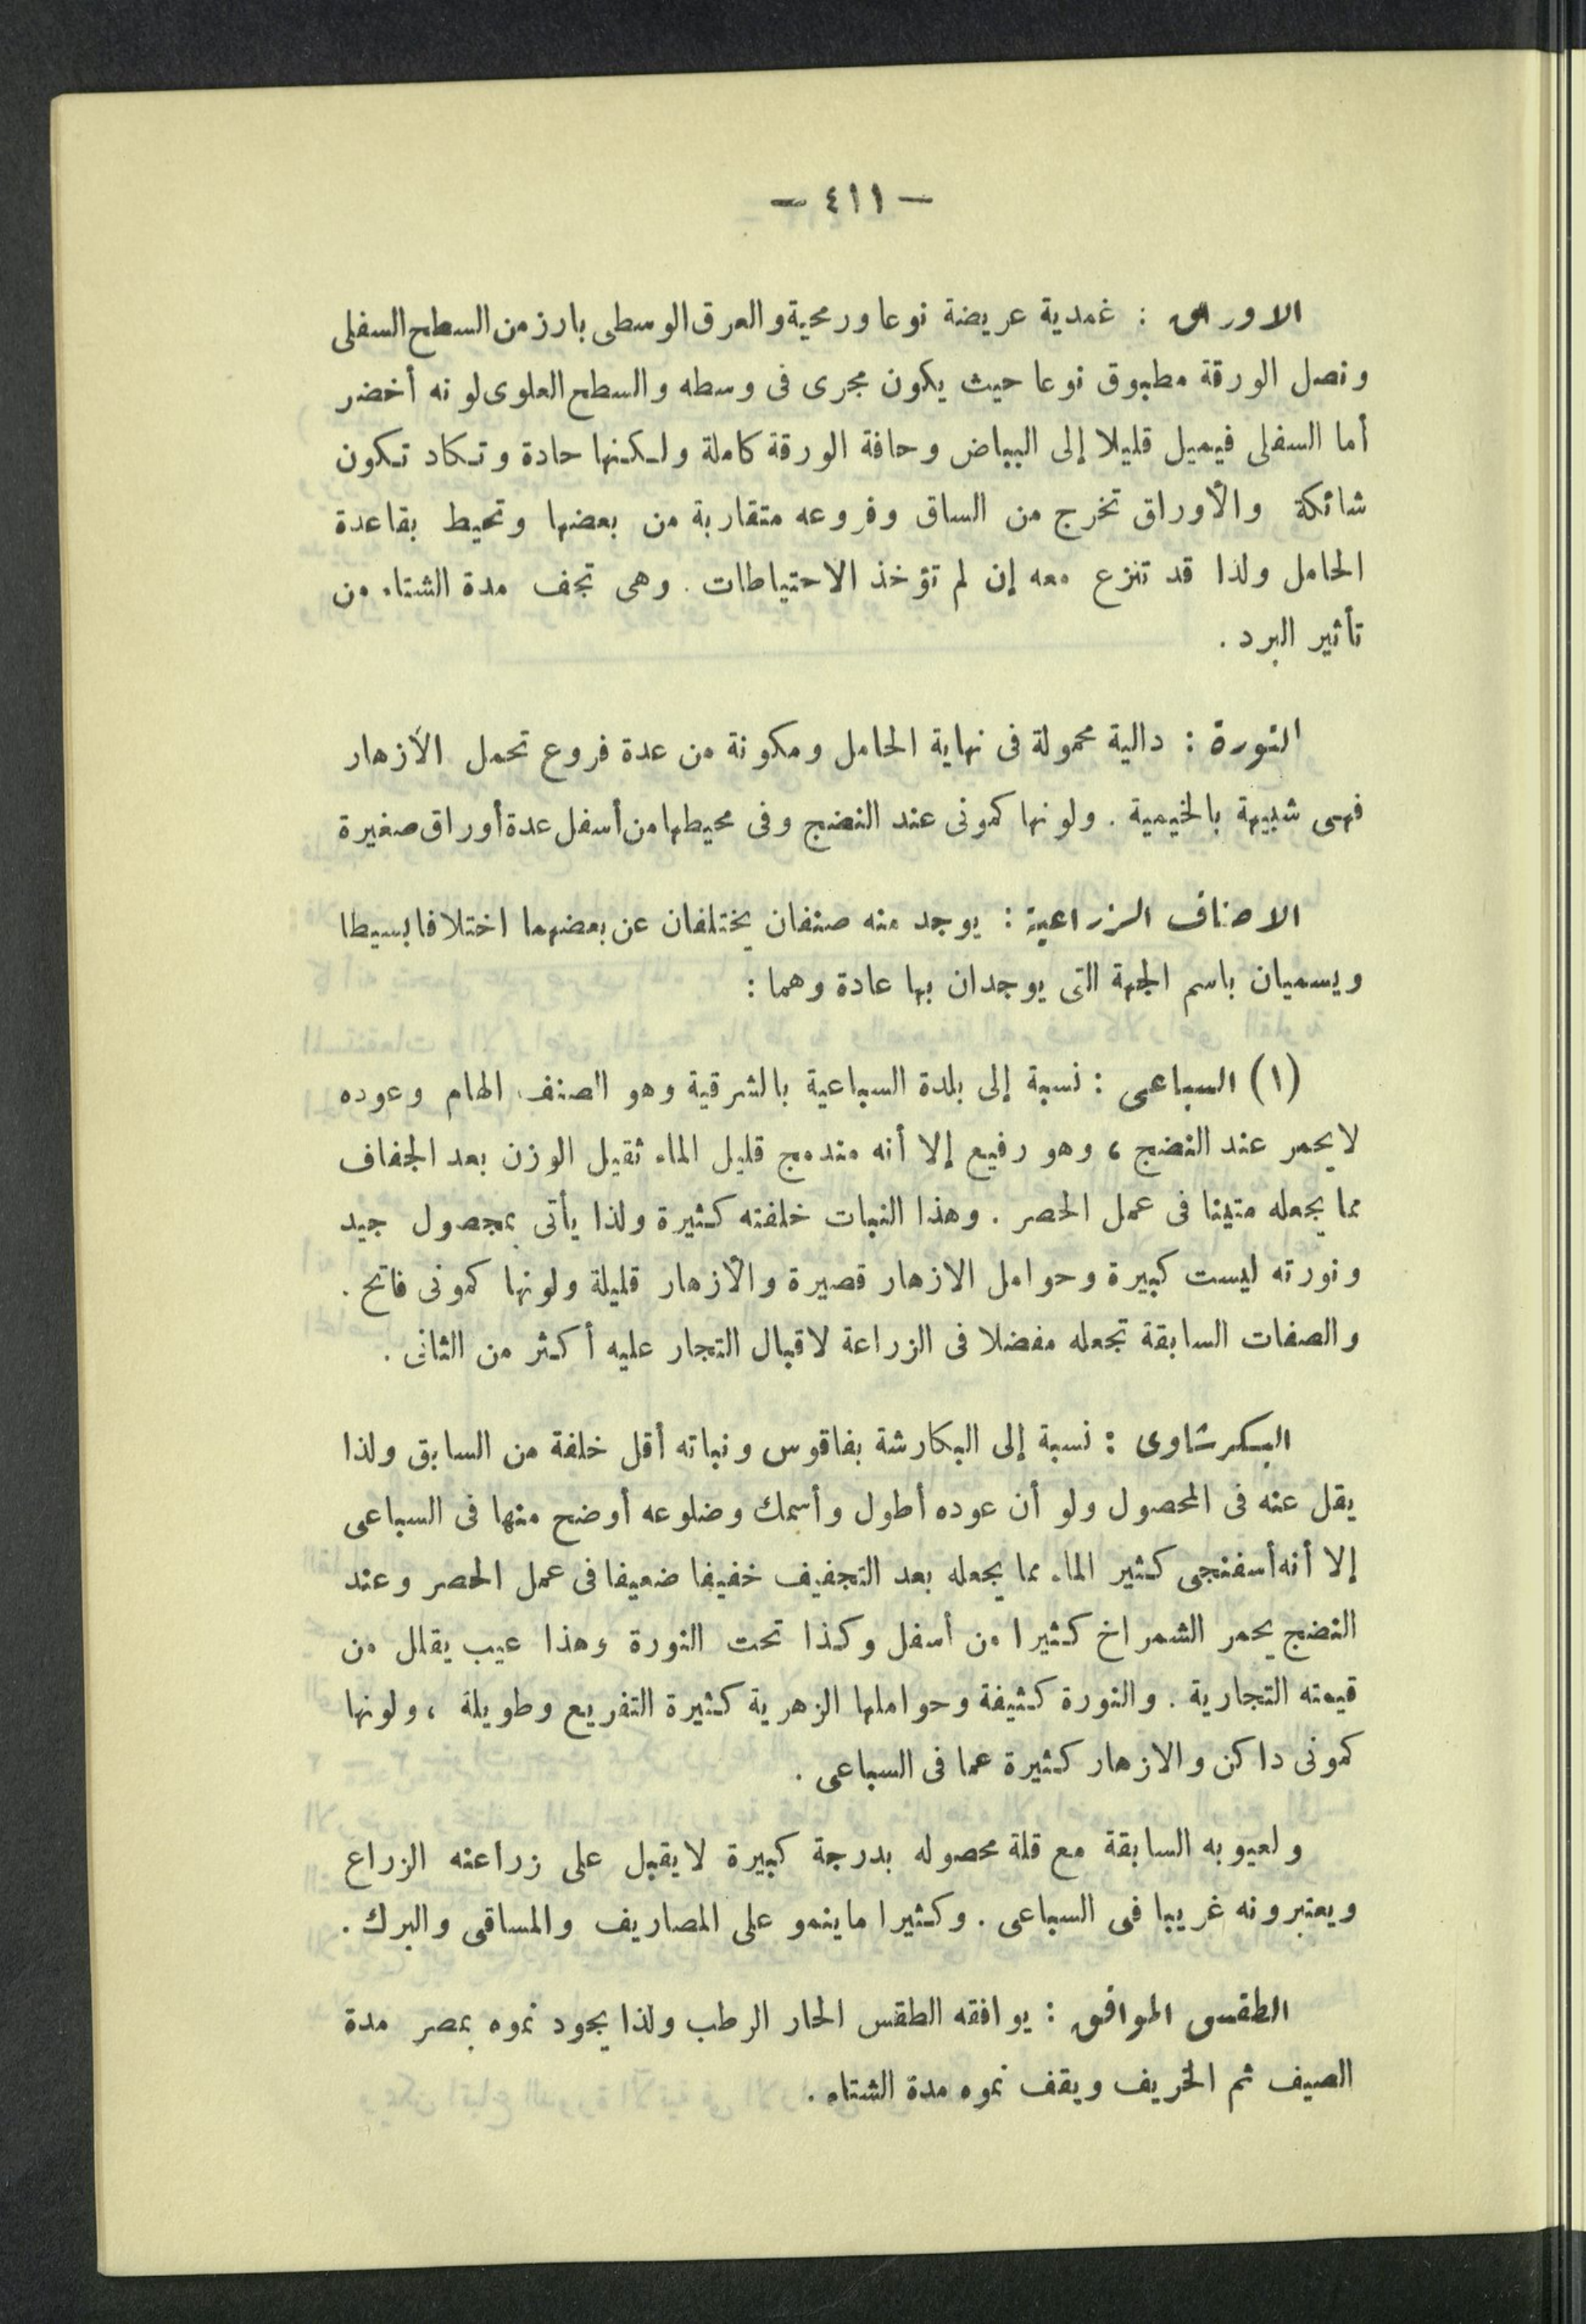 — ٤١١ —
الاوراق : غمدية عريضة نوعا ورمحية والعرق الوسطى بارز من السطح السفلى
ونصل الورقة مطبوق نوعا حيث يكون مجرى فى وسطه والسطح العلوى لونه أخضر
أما السفلى فيميل قليلا إلى البياض وحافة الورقة كاملة ولكنها حادة وتكاد تكون
شائكة والأوراق تخرج من الساق وفروعه متقاربة من بعضها وتحيط بقاعدة
الحامل ولذا قد تنزع معه إن لم تؤخذ الاحتياطات . وهى تجف مدة الشتاء من
تأثير البرد .
النورة : دالية محمولة فى نهاية الحامل ومكونة من عدة فروع تحمل الأزهار
فهى شبيهة بالخيمية . ولونها كمونى عند النضج وفى محيطها من أسفل عدة أوراق صغيرة
الاصناف الزراعية : يوجد منه صنفان يختلفان عن بعضهما اختلافا بسيطا
ويسميان باسم الجهة التى يوجدان بها عادة وهما :
(١) السباعى : نسبة إلى بلدة السباعية بالشرقية وهو الصنف الهام وعوده
لا يحمر عند النضج ، وهو رفيع إلا أنه مندمج قليل الماء ثقيل الوزن بعد الجفاف
مما يجعله متينا فى عمل الحصر . وهذا النبات خلفته كثيرة ولذا يأتى بمحصول جيد
ونورته ليست كبيرة وحوامل الازهار قصيرة والأزهار قليلة ولونها كمونى فاتح .
والصفات السابقة تجعله مفضلا فى الزراعة لاقبال التجار عليه أكثر من الثانى .
البكرشاوى : نسبة إلى البكارشة بفاقوس ونباته أقل خلفة من السابق ولذا
يقل عنه فى المحصول ولو أن عوده أطول وأسمك وضلوعه أوضح منها فى السباعى
إلا أنه أسفنجى كثير الماء مما يجعله بعد التجفيف خفيفا ضعيفا فى عمل الحصر وعند
النضج يحمر الشمراخ كثيرا من أسفل وكذا تحت النورة وهذا عيب يقلل من
قيمته التجارية . والنورة كثيفة وحواملها الزهرية كثيرة التفريع وطويلة ، ولونها
كمونى داكن والازهار كثيرة عما فى السباعى .
ولعيوبه السابقة مع قلة محصوله بدرجة كبيرة لا يقبل على زراعته الزراع
ويعتبرونه غريبا فى السباعى . وكثيرا ما ينمو على المصاريف والمساقى والبرك .
الطقس الموافق : يوافقه الطقس الحار الرطب ولذا يجود نموه بمصر مدة
الصيف ثم الخريف ويقف نموه مدة الشتاء .